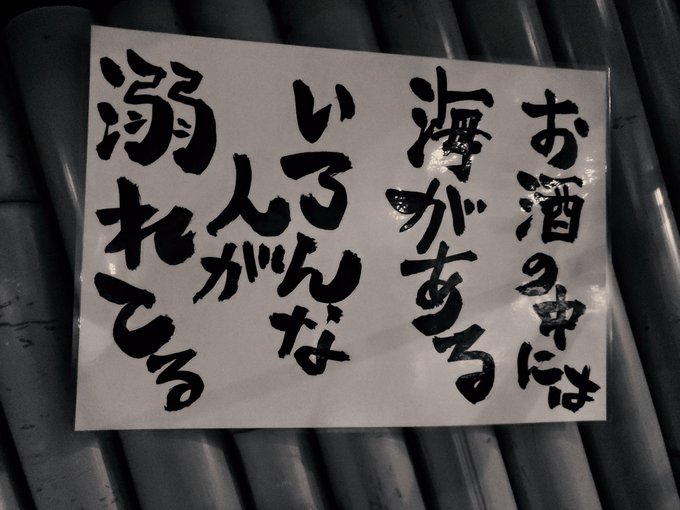 お酒の中には
海がある
いろんな
人が
溺れてる